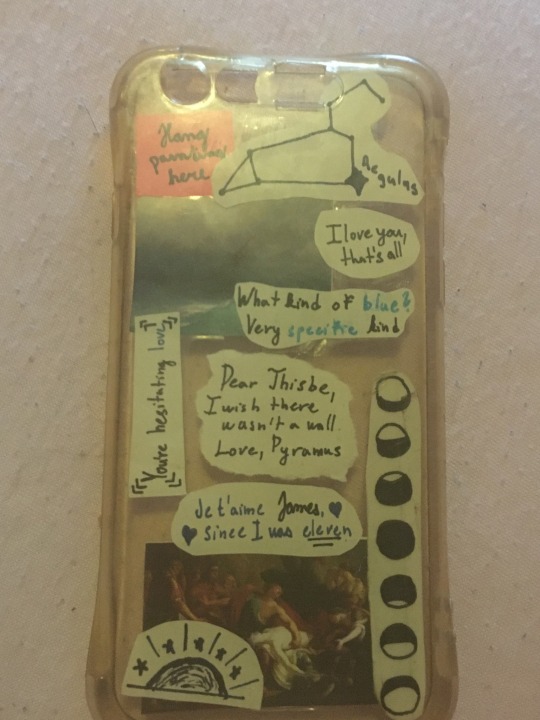 Hang
here
Regulus
I love you,
that's all
What kind of blue?
Very specific kind
You're hesitating love
Dear Thisbe,
I wish there
wasn't a wall.
Love, Pyramus
Je t'aime James,
since I was eleven